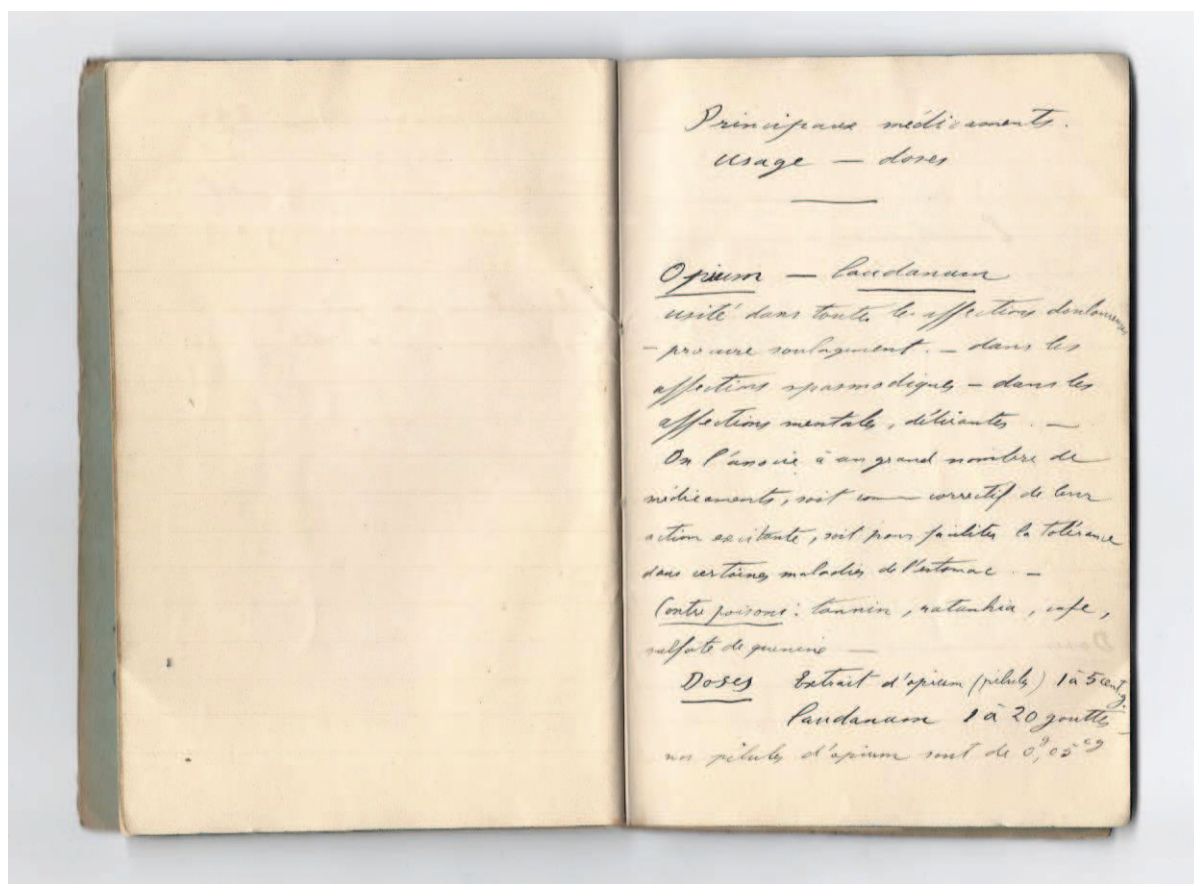 Principaux médicaments.
usage — doses
Opium — Laudanum
usité dans toutes les affections douloureuses
— procure soulagement. — dans les
affections spasmodiques — dans les
affections mentales, délirantes. —
On l'associe à un grand nombre de
médicaments, soit comme correctif de leur
action excitante, soit pour faciliter la tolérance
dans certaines maladies de l'estomac. —
Contre poisons : tannin, ratanhia, café,
sulfate de quinine —
Doses Extrait d'opium (pilules) 1 à 5 centg.
Laudanum 1 à 20 gouttes
nos pilules d'opium sont de 0g,05cg